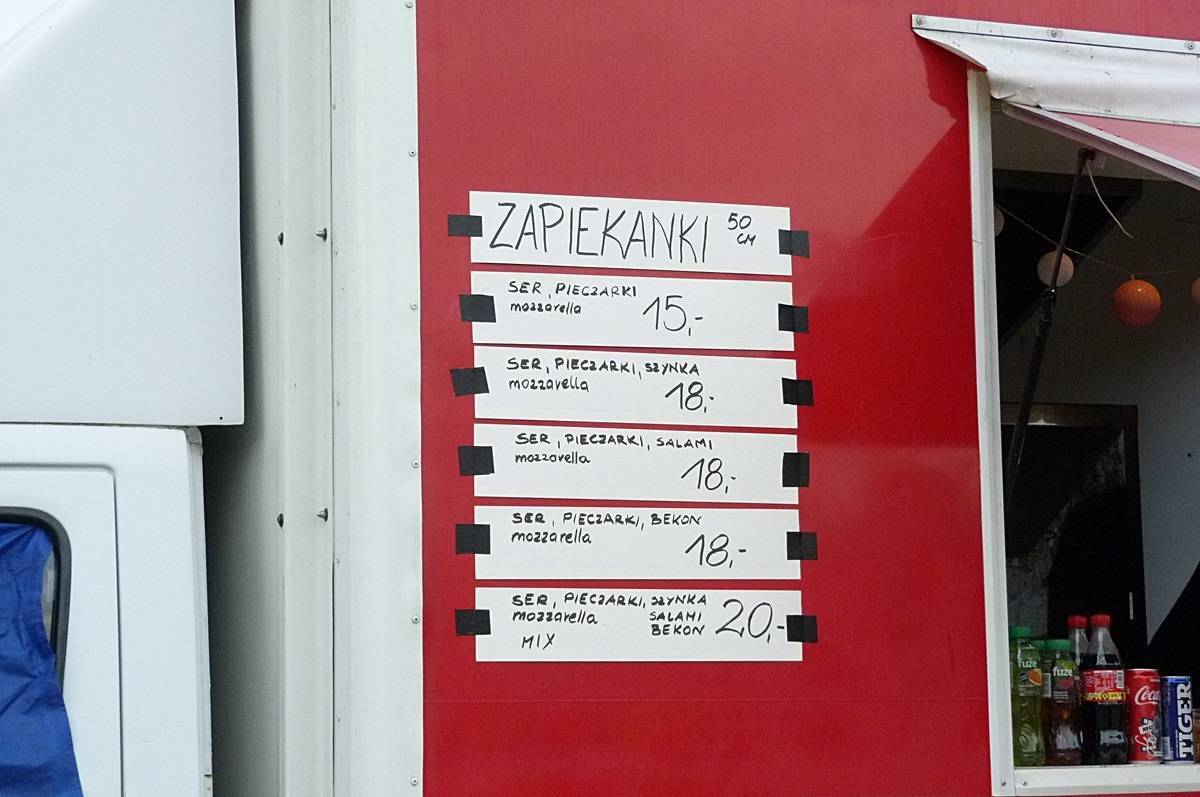 ZAPIEKANKI 50
CM
SER, PIECZARKI
mozzarella 15,-
SER, PIECZARKI, SZYNKA
mozzarella 18,-
SER, PIECZARKI, SALAMI
mozzarella 18,-
SER, PIECZARKI, BEKON
mozzarella 18,-
SER, PIECZARKI, SZYNKA
mozzarella SALAMI 20,-
MIX BEKON
fuze
fuze
Coca
TIGER